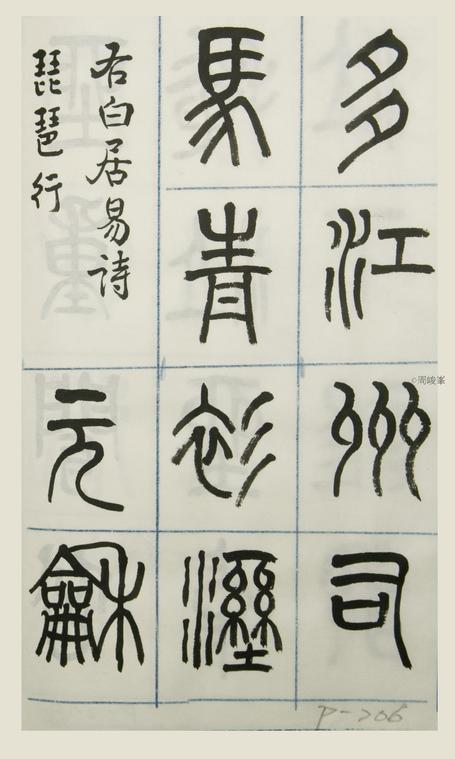 多江州司
馬青衫溼
右白居易詩
琵琶行
元龢
©周峻峯
P-206